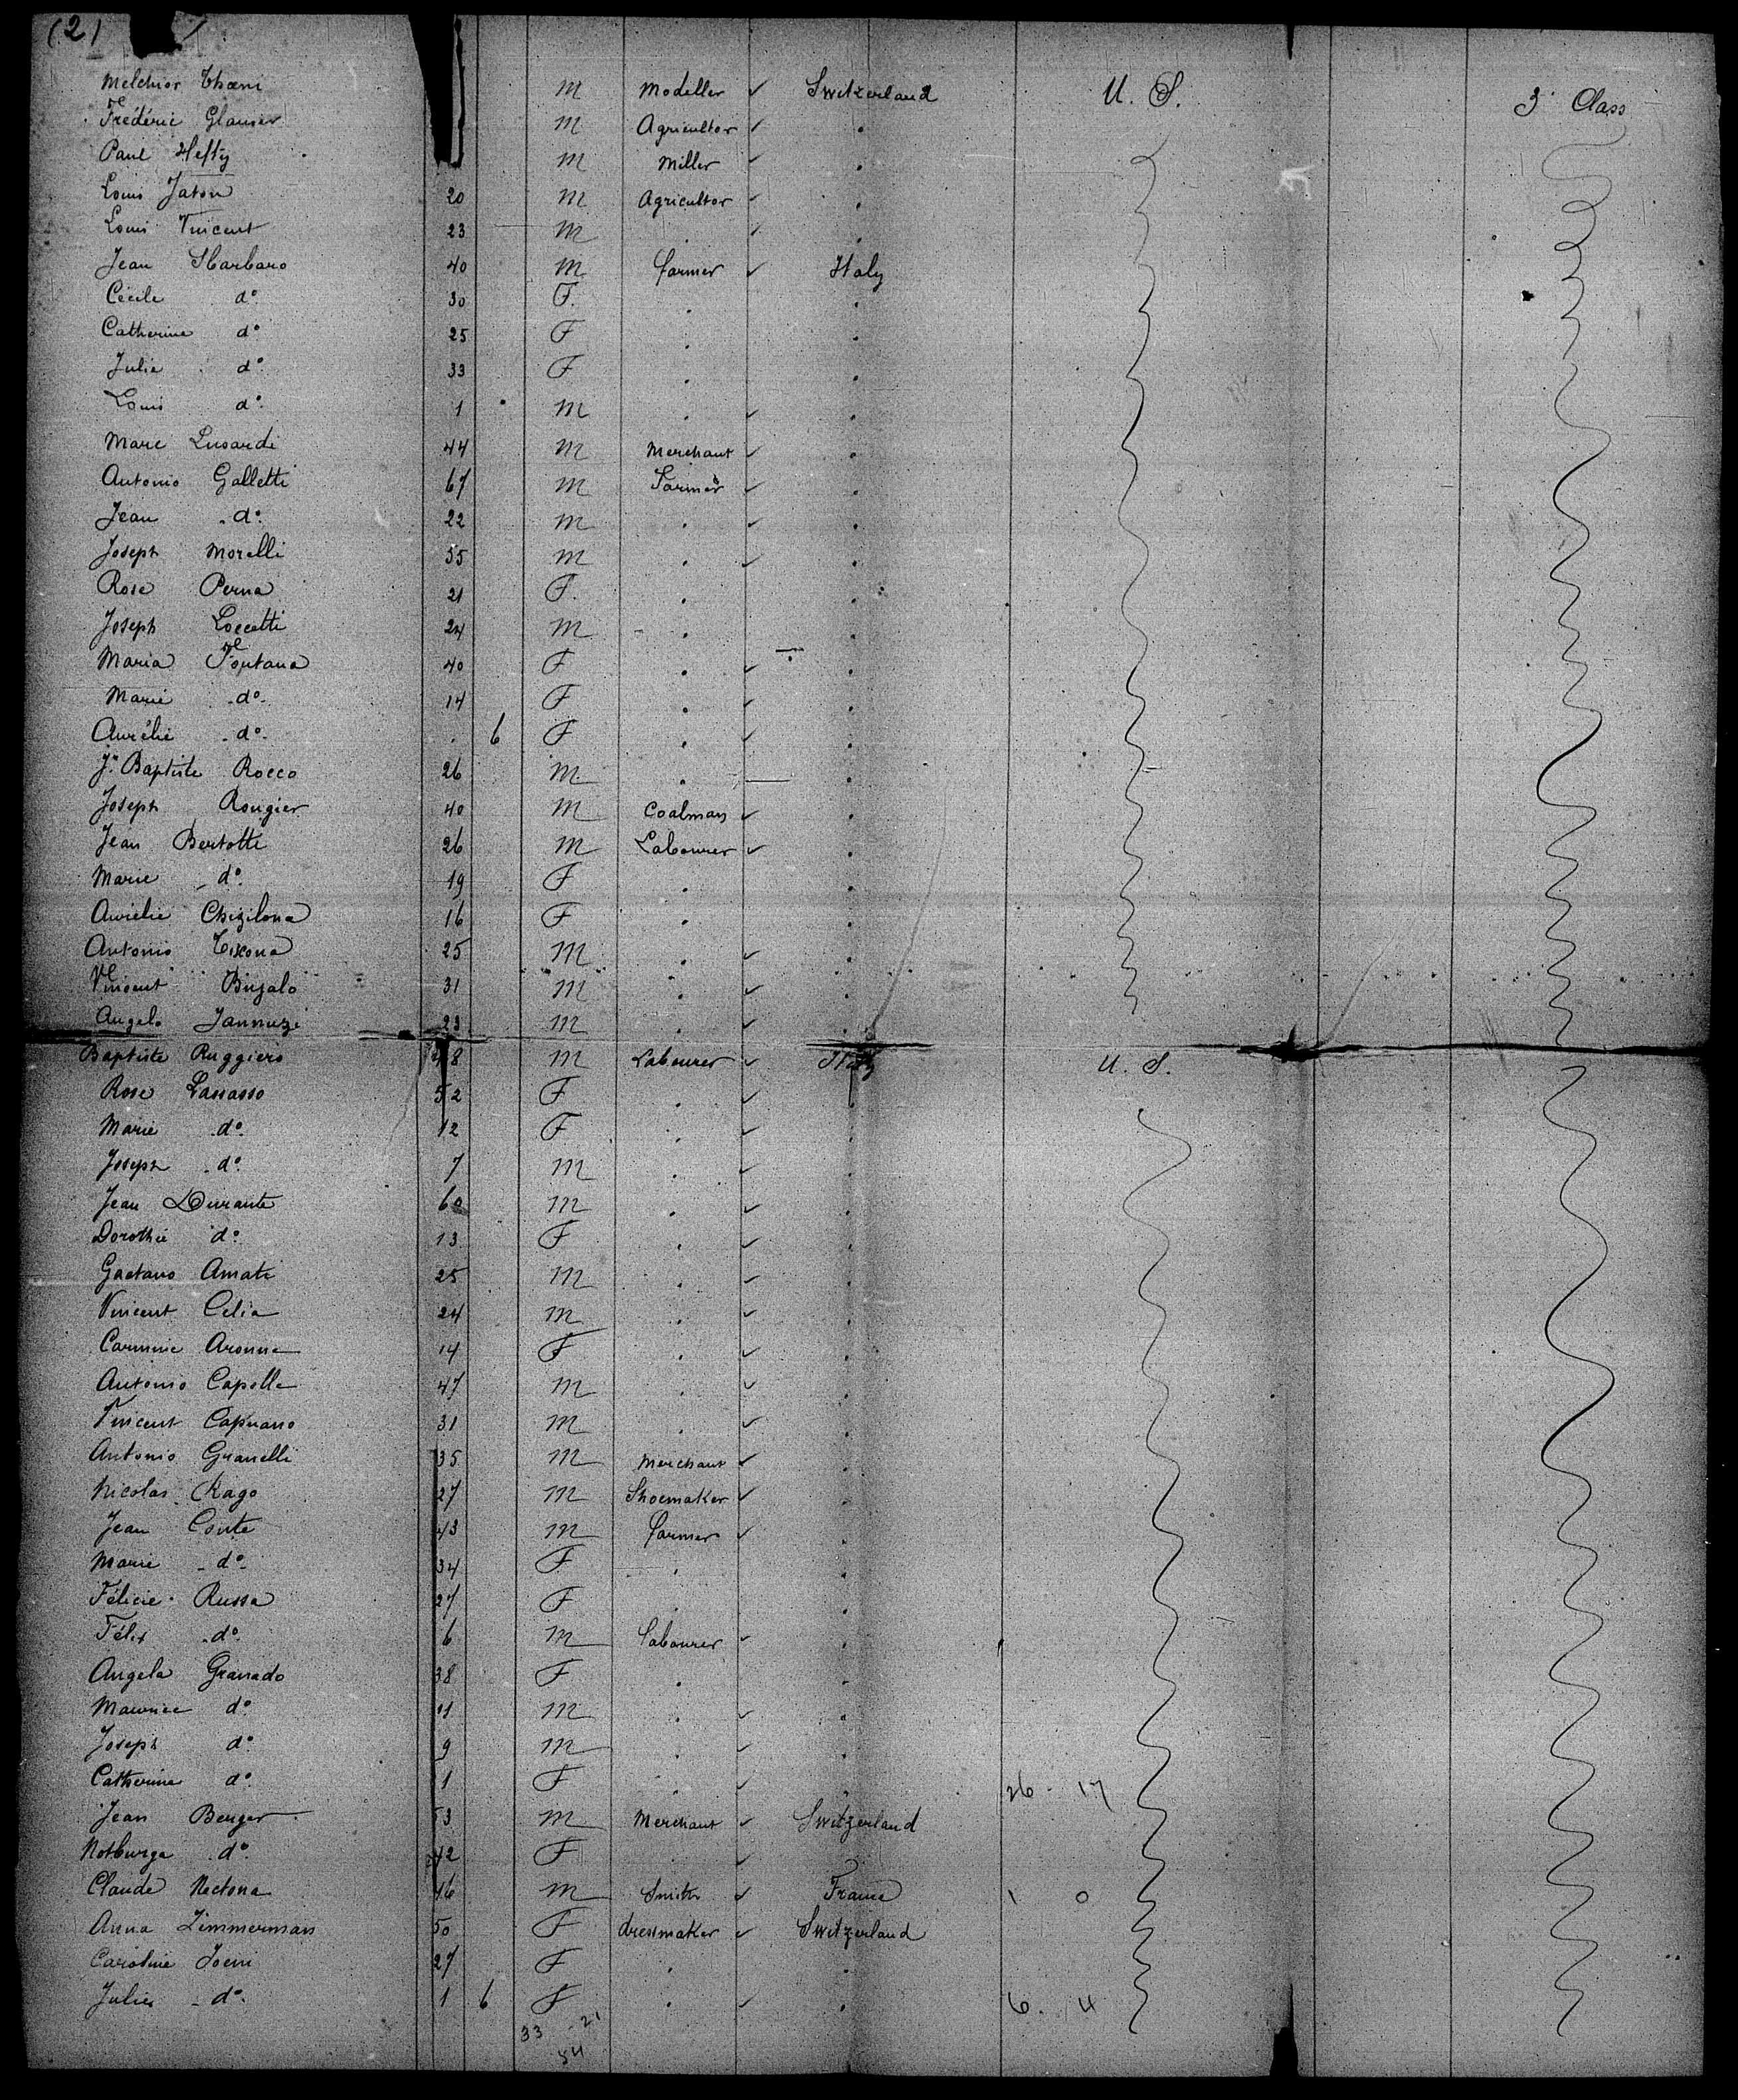 (2)
Melchior Thoeni M Modeller ✓ Switzerland U. S. 3 Class
Frédéric Glauser M Agricultor ✓ .
Paul Hefty M Miller ✓ .
Louis Jaton 20 M Agricultor ✓ .
Louis Vincent 23 M . ✓ .
Jean Sbarbaro 40 M farmer ✓ Italy
Cécile d° 30 F. . .
Catherine d° 25 F . .
Julie d° 33 F . .
Louis d° 1 M . ✓ .
Marc Lusardi 44 M Merchant ✓ .
Antonio Galletti 67 M Farmer ✓ .
Jean d° 22 M . ✓ .
Joseph Morelli 55 M . ✓ .
Rose Perna 21 F. . .
Joseph Loccetti 24 M . .
Maria Fontana 40 F . ✓ .
Marie d° 14 F . ✓ .
Aurélie d° . 6 F . ✓ .
Jn Baptiste Rocco 26 M . .
Joseph Rougier 40 M Coalman ✓ .
Jean Bertotti 26 M Labourer ✓ .
Marie d° 19 F . .
Aurélie 16 F . .
Antonio 25 M . ✓ .
Vincent 31 M . ✓ .
Angelo Jannuzi 23 M . ✓ .
Baptiste Ruggiero 8 M Labourer ✓ Italy U. S.
Rose Lassasso 52 F . ✓ .
Marie d° 12 F . ✓ .
Joseph d° 7 M . ✓ .
Jean Durante 60 M . ✓ .
Dorothée d° 13 F . ✓ .
Gaetano Amati 25 M . ✓ .
Vincent Celia 24 M . ✓ .
Carmine Aronne 14 F . ✓ .
Antonio Capolla 47 M . ✓ .
Vincent Capuano 31 M . ✓ .
Antonio Granelli 35 M Merchant ✓ .
Nicolas Rago 27 M Shoemaker ✓ .
Jean Conte 43 M farmer ✓ .
Marie d° 34 F . .
Félicie Russa 27 F . .
Félix d° 6 M Labourer ✓ .
Angela Granado 38 F . .
Maurice d° 11 M . ✓ .
Joseph d° 9 M . ✓ .
Catherine d° 1 F . ✓ . 26 - 17
Jean Berger 53 M Merchant ✓ Switzerland
Notburga d° 42 F . ✓ .
Claude Nectona 46 M Smith ✓ France 1 0
Anna Zimmerman 50 F dressmaker ✓ Switzerland
Caroline 27 F . .
Julie d° 1 6 F . ✓ . 6. 4
33 - 21
54